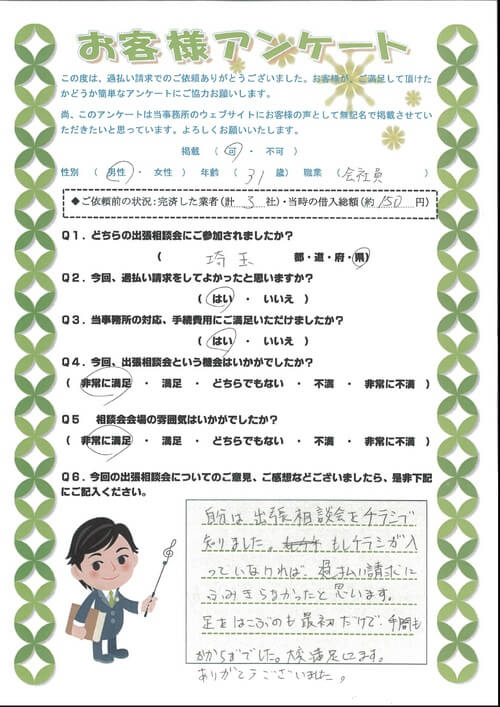 お客様アンケート
この度は、過払い請求でのご依頼ありがとうございました。お客様が、ご満足して頂けた
かどうか簡単なアンケートにご協力お願いします。
尚、このアンケートは当事務所のウェブサイトにお客様の声として無記名で掲載させてい
ただきたいと思っています。よろしくお願いいたします。
掲載 （ 可 ・ 不可 ）
性別 （ 男性 ・ 女性 ） 年齢 （ 31 歳） 職業 （会社員 ）
◆ご依頼前の状況：完済した業者(計 3 社)・当時の借入総額(約 150 円)
Q1．どちらの出張相談会にご参加されましたか？
（ 埼玉 都・道・府・県）
Q2．今回、過払い請求をしてよかったと思いますか？
（ はい ・ いいえ ）
Q3．当事務所の対応、手続費用にご満足いただけましたか？
（ はい ・ いいえ ）
Q4．今回、出張相談会という機会はいかがでしたか？
（ 非常に満足 ・ 満足 ・ どちらでもない ・ 不満 ・ 非常に不満 ）
Q5 相談会会場の雰囲気はいかがでしたか？
（ 非常に満足 ・ 満足 ・ どちらでもない ・ 不満 ・ 非常に不満 ）
Q6．今回の出張相談会についてのご意見、ご感想などございましたら、是非下記
にご記入ください。
自分は出張相談会をチラシで
知りました。もしチラシが入
っていなければ、過払い請求に
ふみきらなかったと思います。
足をはこぶのも最初だけで、手間も
かからずでした。大変満足してます。
ありがとうございました。